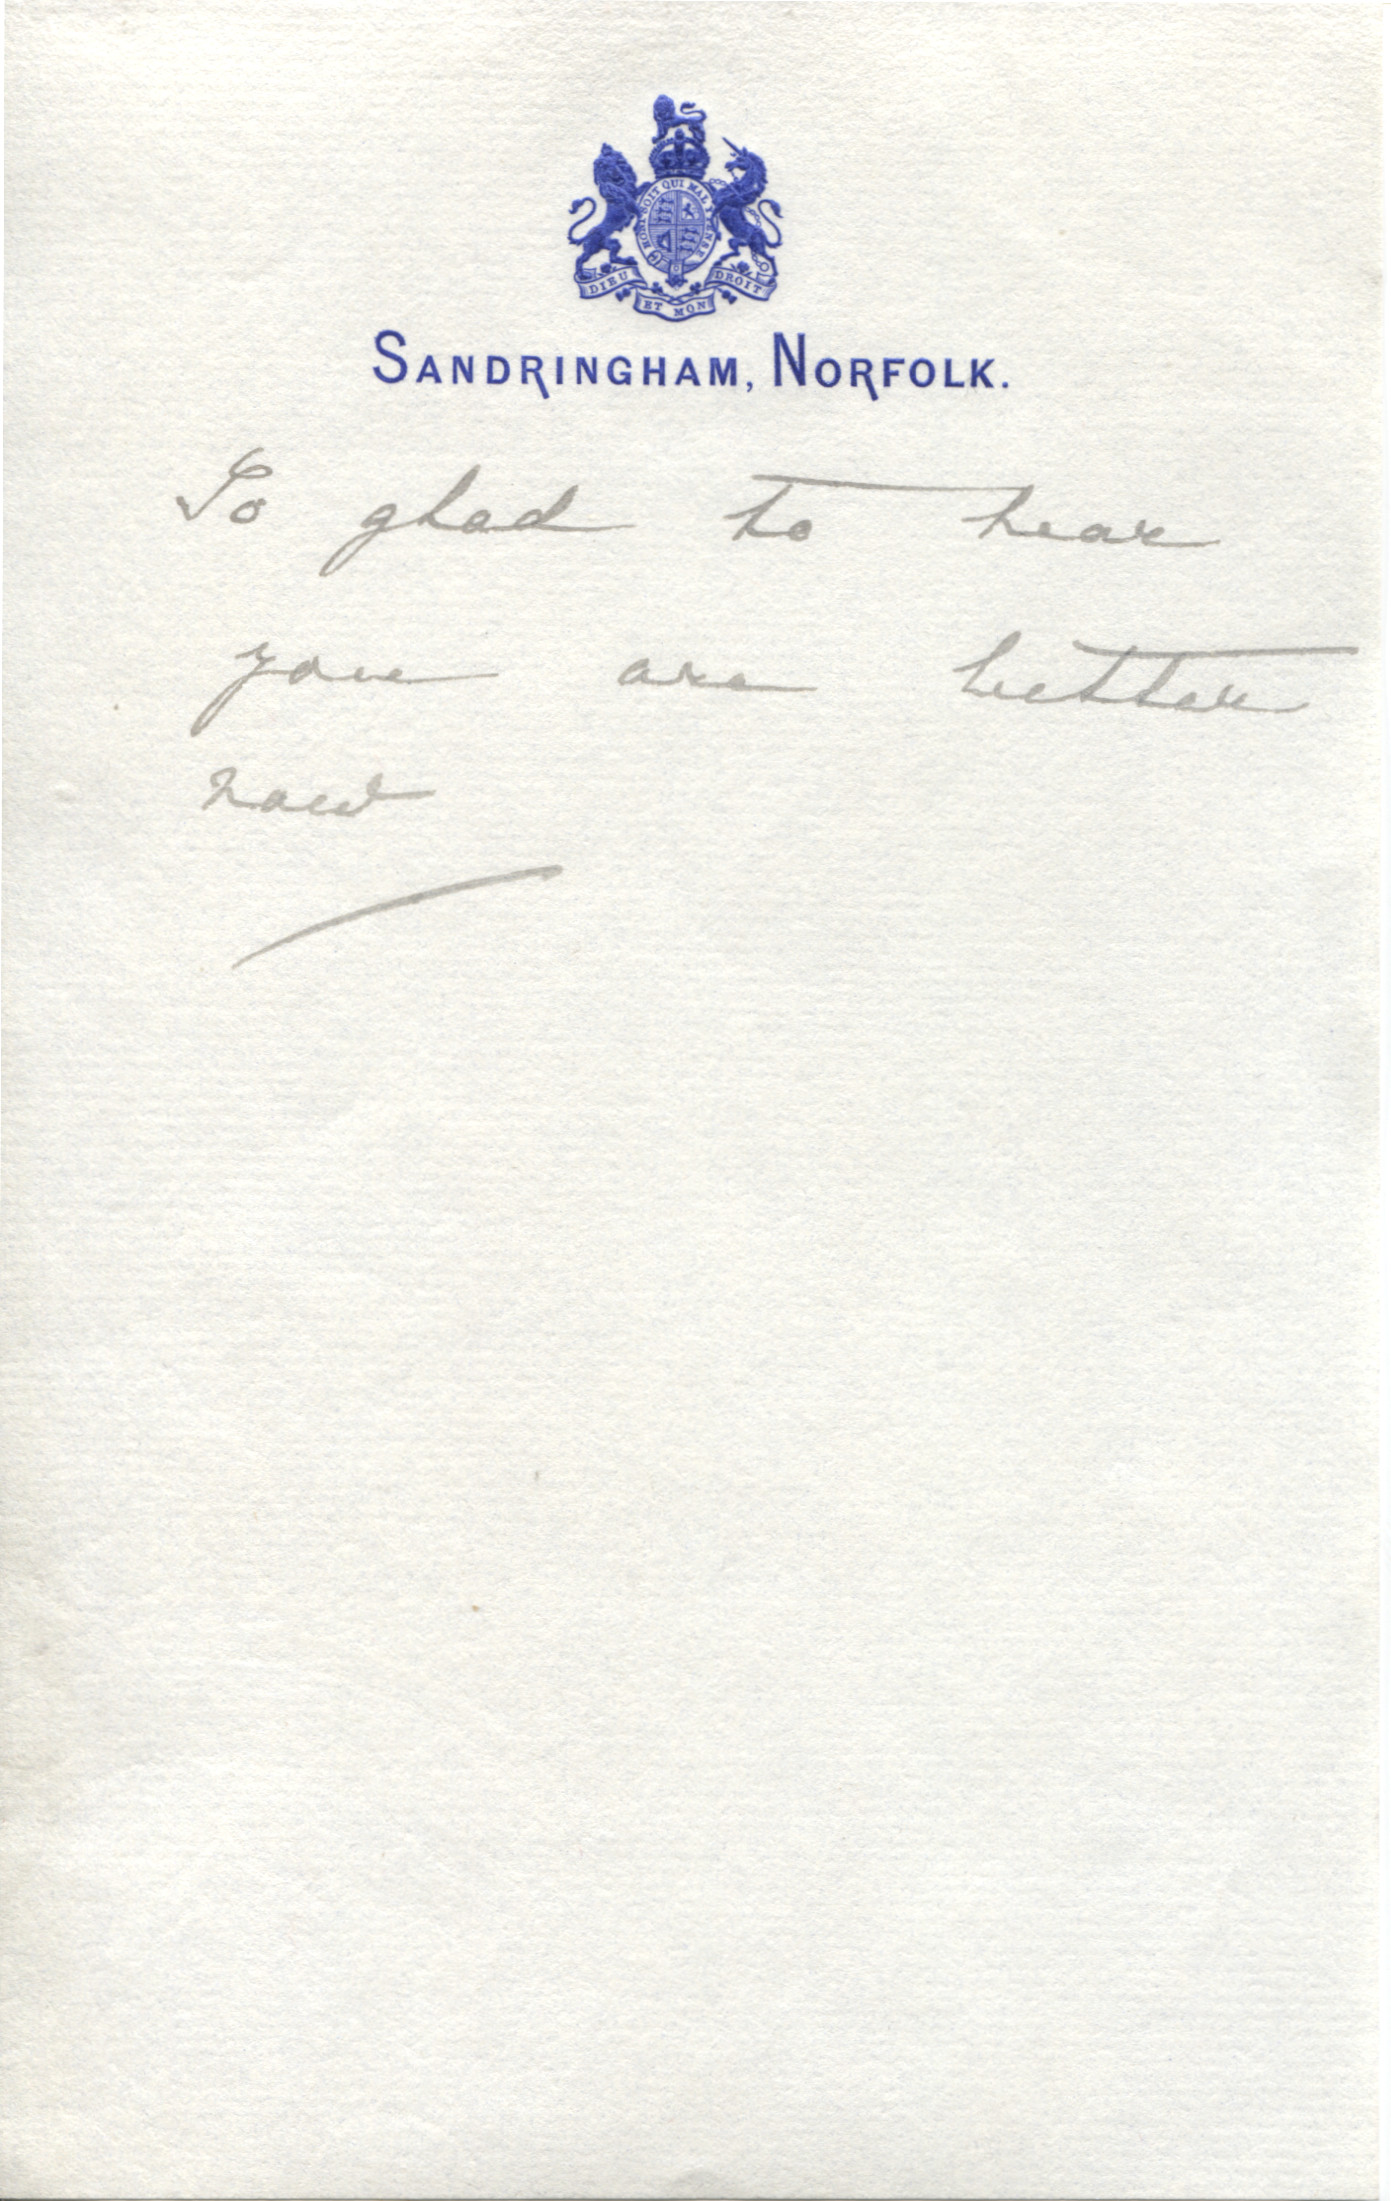 HONI SOIT QUI MAL Y PENSE
DIEU ET MON DROIT
SANDRINGHAM, NORFOLK.
So glad to hear
you are better
now